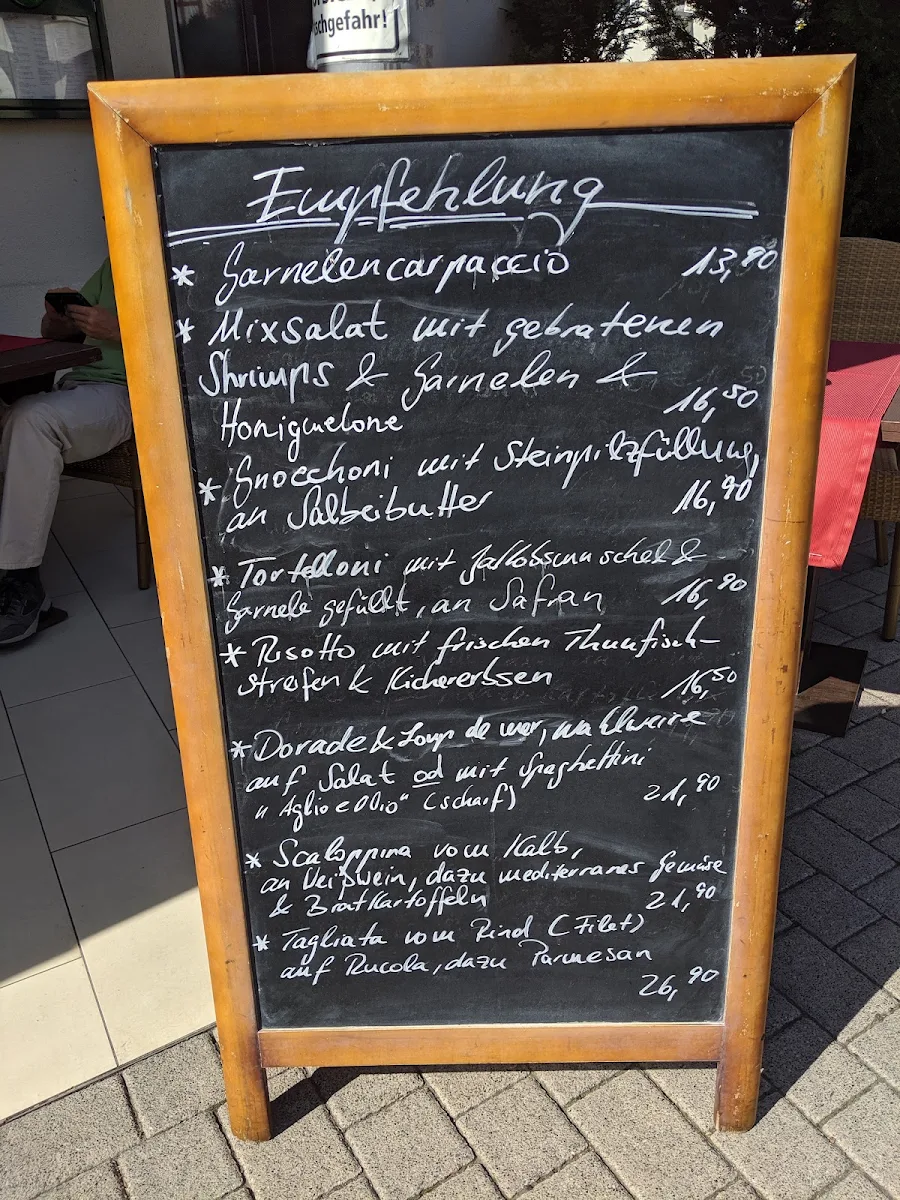 schgefahr!
Empfehlung
* Garnelencarpaccio 13,90
* Mixsalat mit gebratenen
Shrimps & Garnelen &
Honigmelone 16,50
* Gnocchoni mit Steinpilzfüllung,
an Salbeibutter 16,90
* Tortelloni mit Jakobsmuschel &
Garnele gefüllt, an Safran 16,90
* Risotto mit frischen Thunfisch-
streifen & Kichererbsen 16,50
* Dorade & Loup de mer, wahlweise
auf Salat od mit Spaghettini
"Aglio e Olio" (scharf) 21,90
* Scaloppina vom Kalb,
an Weißwein, dazu mediterranes Gemüse
& Bratkartoffeln 21,90
* Tagliata vom Rind (Filet)
auf Rucola, dazu Parmesan
26,90